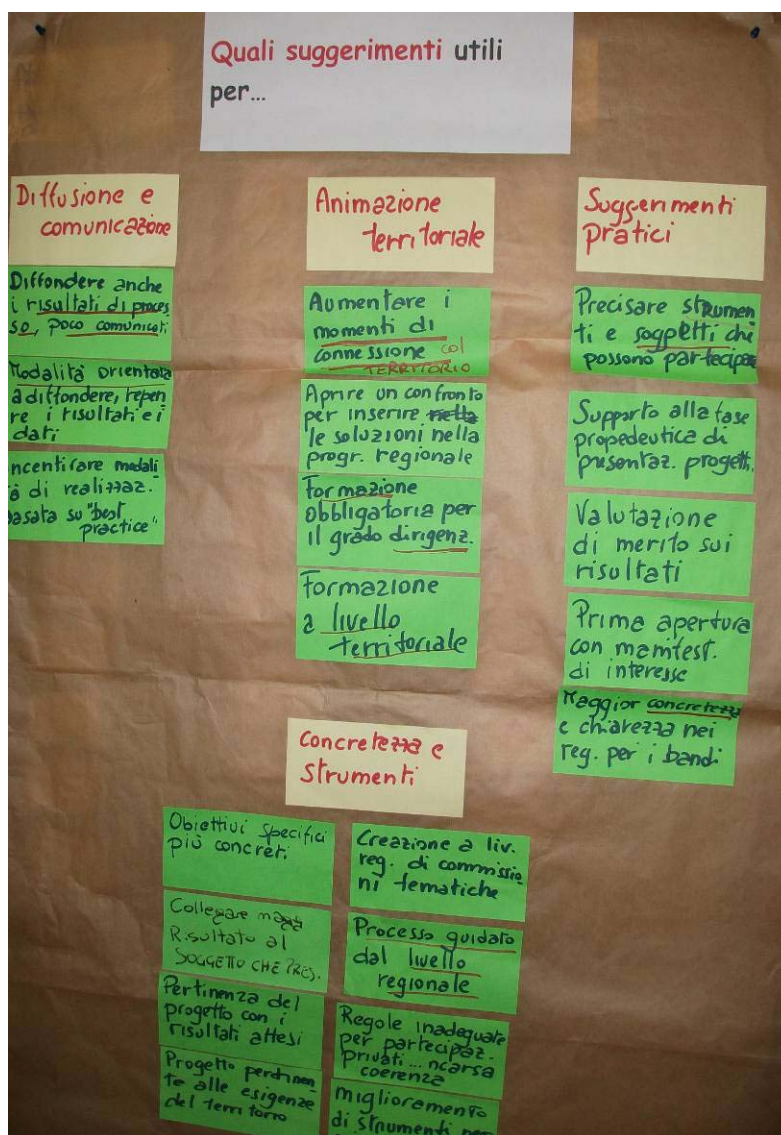 Quali suggerimenti utili
per...
Diffusione e
comunicazione
Diffondere anche
i risultati di proces
so, poco comunicati
Modalità orientata
a diffondere, reperi
re i risultati e i
dati
ncentivare modali
à di realizzaz.
basata su "best
practice"
Animazione
territoriale
Aumentare i
momenti di
connessione col
TERRITORIO
Aprire un confronto
per inserire
le soluzioni nella
progr. regionale
Formazione
obbligatoria per
il grado dirigenz.
Formazione
a livello
territoriale
Suggerimenti
pratici
Precisare strumen
ti e soggetti che
possono partecipare
Supporto alla fase
propedeutica di
presentaz. progetti.
Valutazione
di merito sui
risultati
Prima apertura
con manifest.
di interesse
Maggior concretezza
e chiarezza nei
reg. per i bandi
Concretezza e
strumenti
Obiettivi specifici
più concreti
Collegare
Risultato al
SOGGETTO CHE PRES.
Pertinenza del
progetto con i
risultati attesi
Progetto pertinen
te alle esigenze
del territorio
Creazione a liv.
reg. di commissio
ni tematiche
Processo guidato
dal livello
regionale
Regole inadeguate
per partecipaz.
privati... scarsa
coerenza
miglioramento
di strumenti per